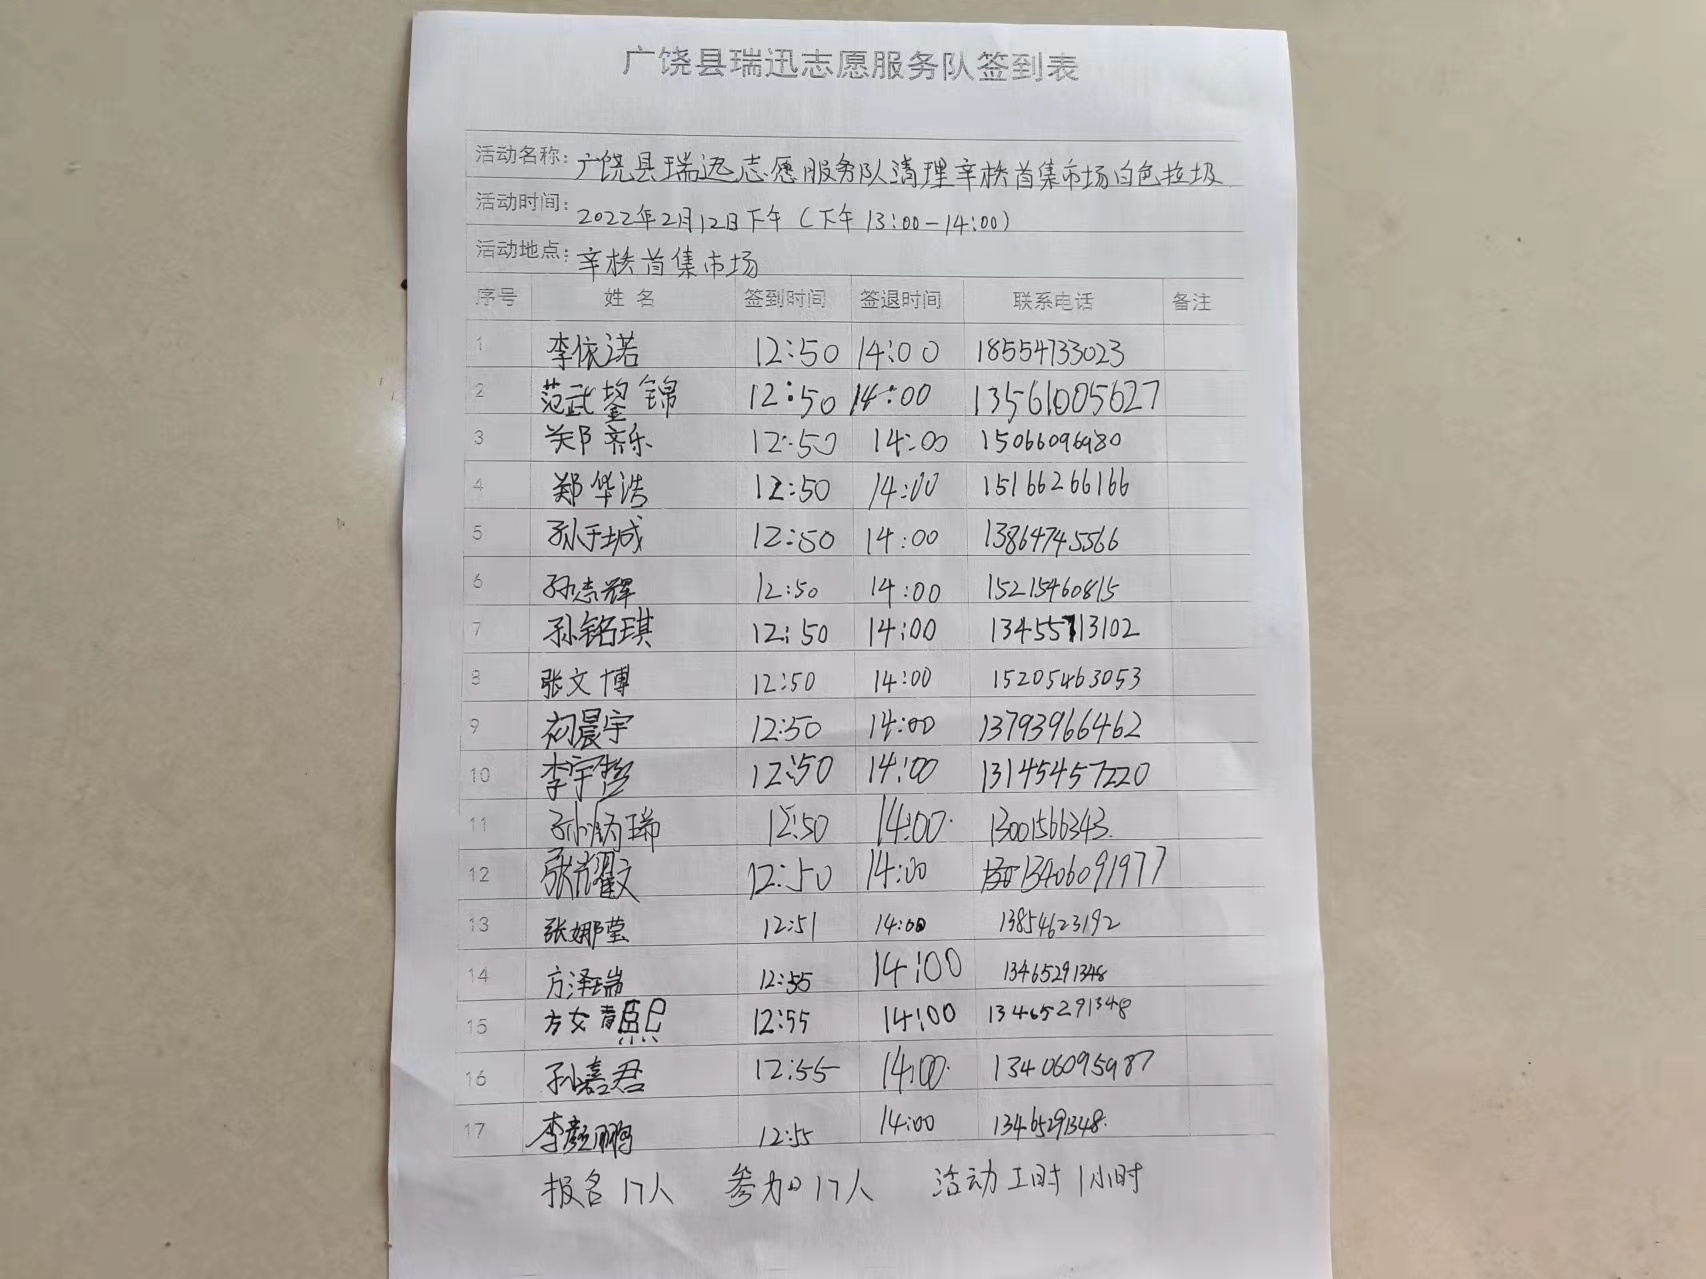 广饶县瑞迅志愿服务队签到表
活动名称: 广饶县瑞迅志愿服务队清理辛桥首集市场白色垃圾
活动时间: 2022年2月12日下午(下午13:00-14:00)
活动地点: 辛桥首集市场
序号 姓名 签到时间 签退时间 联系电话 备注
1 李依诺 12:50 14:00 18554733023
2 范武鋆锦 12:50 14:00 13561005627
3 郑齐乐 12:50 14:00 15066096980
4 郑华浩 12:50 14:00 15166266166
5 孙于城 12:50 14:00 13864745566
6 孙志辉 12:50 14:00 15215460815
7 孙铭琪 12:50 14:00 13455713102
8 张文博 12:50 14:00 15205463053
9 初晨宇 12:50 14:00 13793966462
10 李宇哲 12:50 14:00 13145457220
11 孙炳瑞 12:50 14:00 13001566343
12 张耀文 12:50 14:00 13406091977
13 张娜莹 12:51 14:00 13854623192
14 方泽瑞 12:55 14:00 13465291348
15 方女青熙 12:55 14:00 13465291348
16 孙嘉君 12:55 14:00 13406095987
17 李彦鹏 12:55 14:00 13465291348
报名17人 参加17人 活动工时1小时